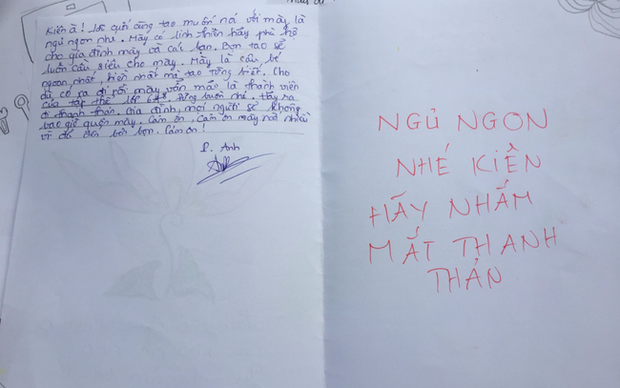 Kiên à! lời cuối cùng tao muốn nói với mày là
ngủ ngon nhé. Mày có linh thiên hãy phù hộ
cho gia đình mày và các bạn. Bọn tao sẽ
luôn cầu siêu cho mày. Mày là cậu bé
ngoan nhất, hiền nhất mà tao từng biết. Cho
dù có ra đi rồi mày vẫn mãi là thành viên
của tập thể lớp 6A8. Đừng buồn nhé. Hãy ra
đi thanh thản. Gia đình, mọi người sẽ không
bao giờ quên mày. Cảm ơn, cảm ơn mày rất nhiều
vì đã đến bên bọn. Cảm ơn!
P. Anh
NGỦ NGON
NHÉ KIÊN
HÃY NHẮM
MẮT THANH
THẢN